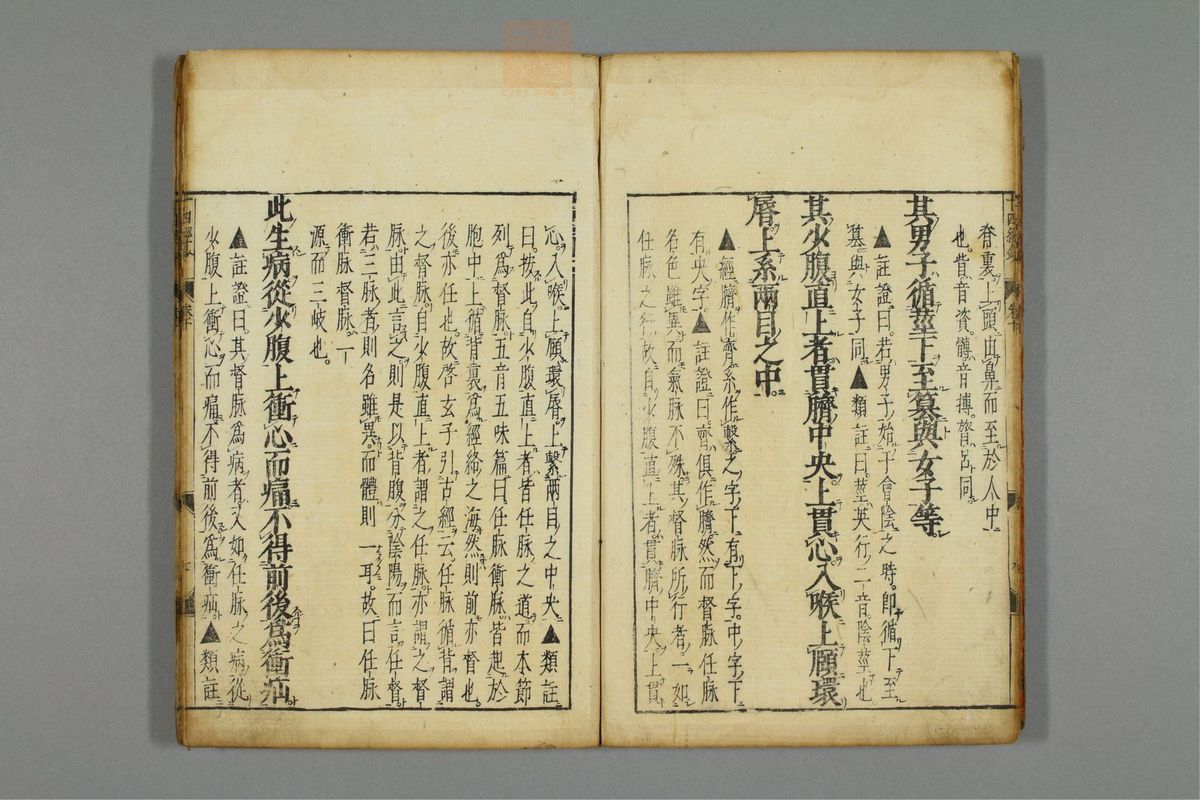 脊裏上頭由鼻而至於人中
也背音資膊音搏膂呂同
其男子循莖下至簒與女子等
▲註證曰若男子始于會陰之時即循下至
簒與女子同▲類註曰莖英行二音陰莖也
其少腹直上者貫臍中央上貫心入喉上頤環
脣上系兩目之中
▲經臍作齊系作繫之字下有下字中字下
有央字▲註證曰齊俱作臍然而督脈任脈
名色雖異而氣脈不殊其督脈所行者一如
任脈之行故自少腹直上者貫臍中央上貫
心入喉上頤環脣上繫兩目之中央▲類註
曰按此自少腹直上者皆任脈之道而本節
列為督脈五音五味篇曰任脈衝脈皆起於
胞中上循背裏為經絡之海然則前亦督也
後亦任也故啓玄子引古經云任脈循背謂
之督脈自少腹直上者謂之任脈亦謂之督
脈由此言之則是以背腹分陰陽而言任督
若三脈者則名雖異而體則一耳故曰任脈
衝脈督脈一
源而三岐也
此生病從少腹上衝心而痛不得前後為衝疝
▲註證曰其督脈為病者又如任脈之病從
少腹上衝心而痛不得前後為衝疝▲類註